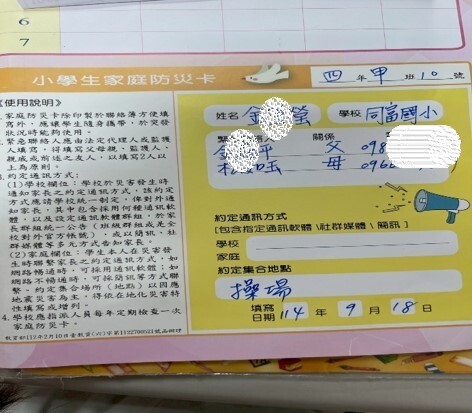 6
7
小學生家庭防災卡
四年甲班10號
《使用說明》
姓名 金 螢 學校 同富國小
關係
父 098
母 0966
約定通訊方式
[包含指定通訊軟體\社群媒體\簡訊]
學校
家庭
約定集合地點
操場
填寫日期 114年9月18日
1.家庭防災卡除印製於聯絡簿方便填
寫外，應讓學生隨身攜帶，於突發
狀況時能夠使用。
2.緊急聯絡人應由法定代理人或監護
人填寫，將填寫父母親、監護人、
親戚或前述之友人，以填寫2人以
上為原則。
3.約定通訊方式：
(1)學校欄位：學校於災害發生時
通知家長之約定通訊方式，該約定
方式應請學校統一制定，俾對外通
知家長，其中包含採用何種通訊軟
體，以及設定通訊軟體群組，於家
長群組統一公告（班級群組或是全
校對外官方帳號），或以簡訊、社
群媒體等多元方式告知家長。
(2)家庭欄位：學生本人在災害發
生時聯繫家長之約定通訊方式，如
網路暢通時，可採用通訊軟體；如
網路不暢通時，可採簡訊等方式聯
繫。約定集合場所（地點）以因應
地震災害為主，得依在地化災害特
性填寫或增列。
4.學校應指派人員每年定期檢查一次
家庭防災卡。